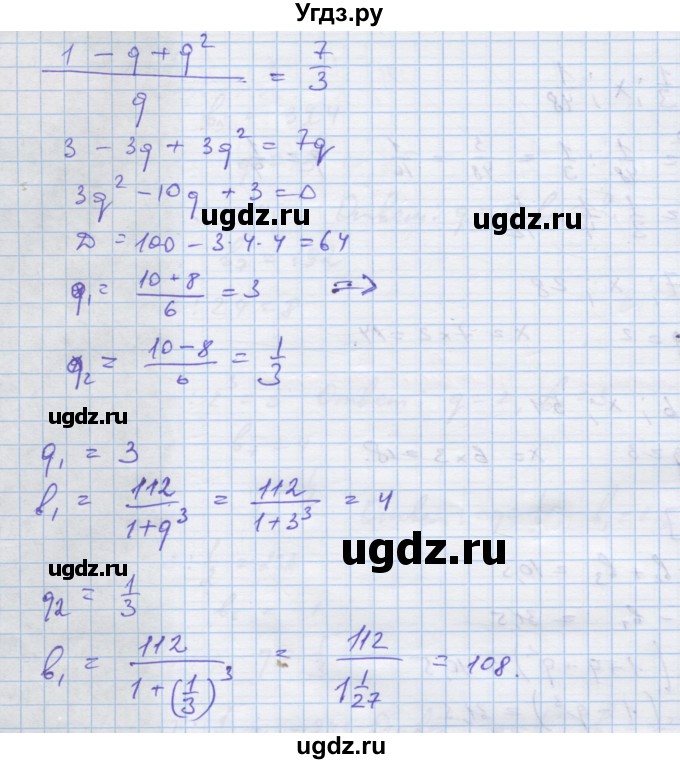 Угдз.ру
(1 - q + q²)/q = 7/3
3 - 3q + 3q² = 7q
3q² - 10q + 3 = 0
ugdz.ru
ugdz.ru
D = 100 - 3·4·4 = 64
q₁ = (10 + 8)/6 = 3 =>
q₂ = (10 - 8)/6 = 1/3
ugdz.ru
q₁ = 3
b₁ = 112/(1 + q³) = 112/(1 + 3³) = 4
ugdz.ru
ugdz.ru
q₂ = 1/3
b₁ = 112/(1 + (1/3)³) = 112/(1 1/27) = 108.
ugdz.ru
ugdz.ru